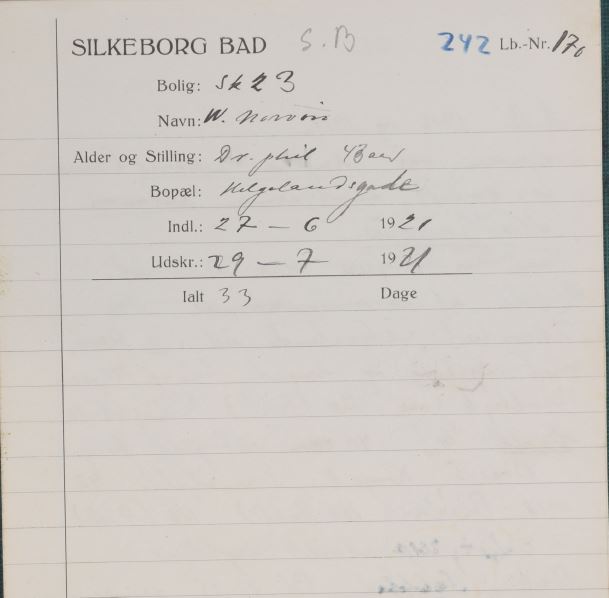 SILKEBORG BAD S.B 242 Lb.-Nr. 170
Bolig: Sk 23
Navn: W. Norvin
Alder og Stilling: Dr. phil 43 aar
Bopæl: Helgelandsgade
Indl.: 27 — 6 1921
Udskr.: 29 — 7 1921
Ialt 33 Dage